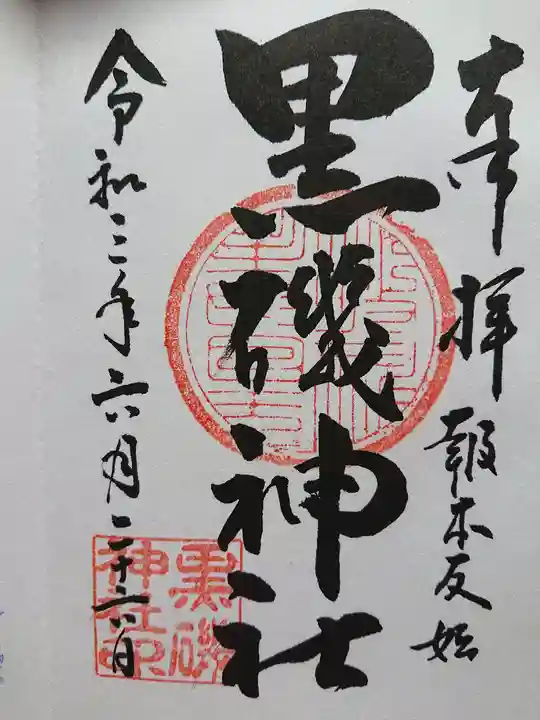 奉拝
報本反始
黒磯神社
令和三年六月二十六日
黒磯
神社印